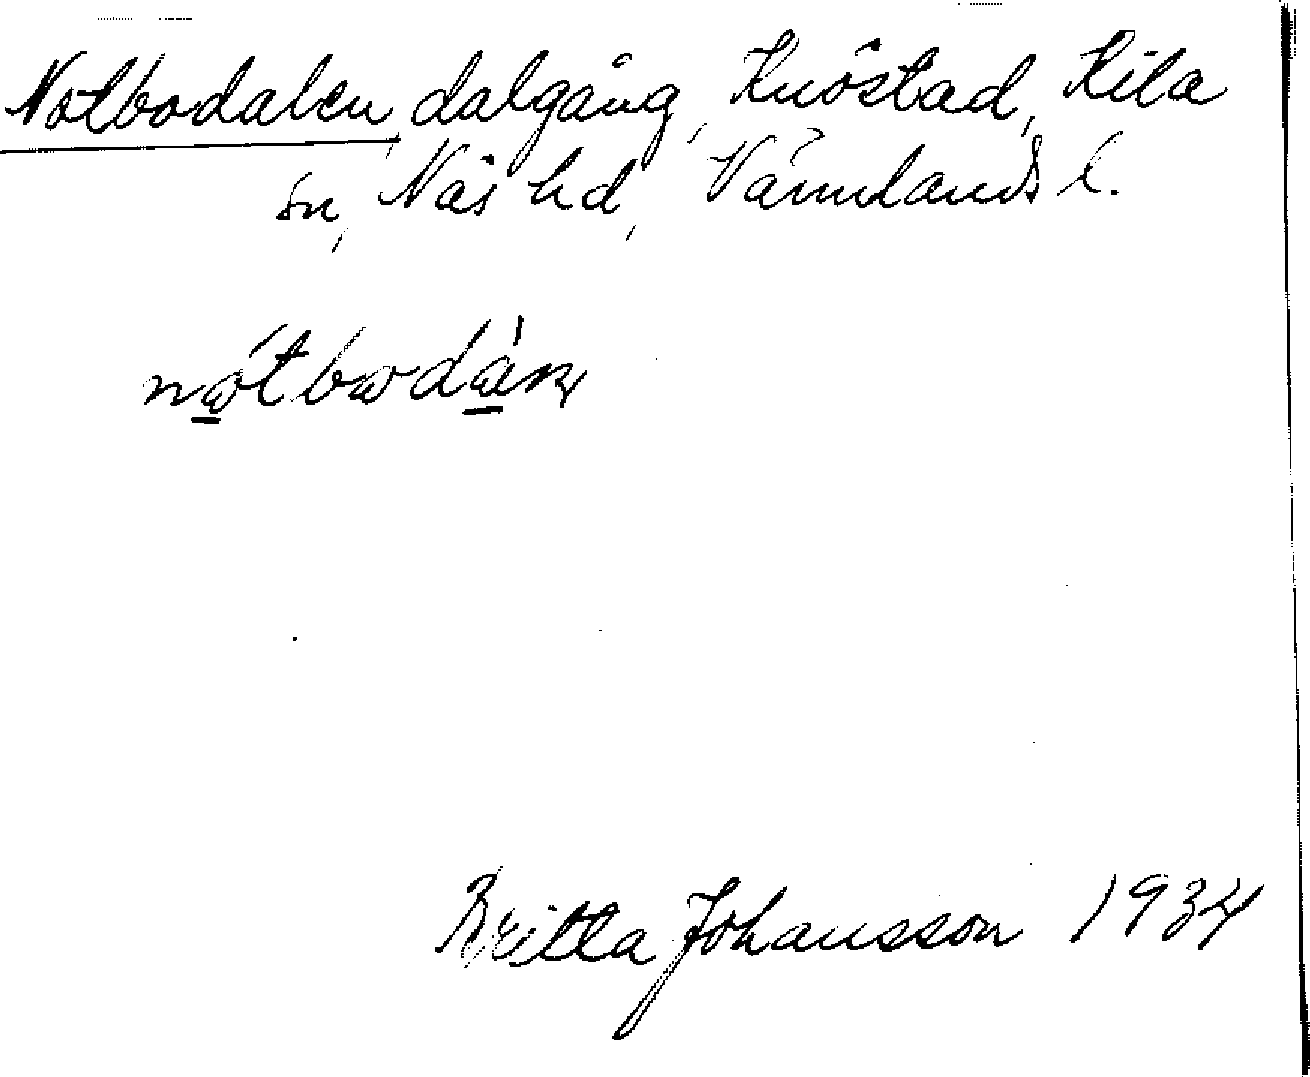 Notbodalen, dalgång, Knöstad, Kila
sn, Näs hd, Värmlands l.
nɷ́tbɷdàn
Britta Johansson 1934